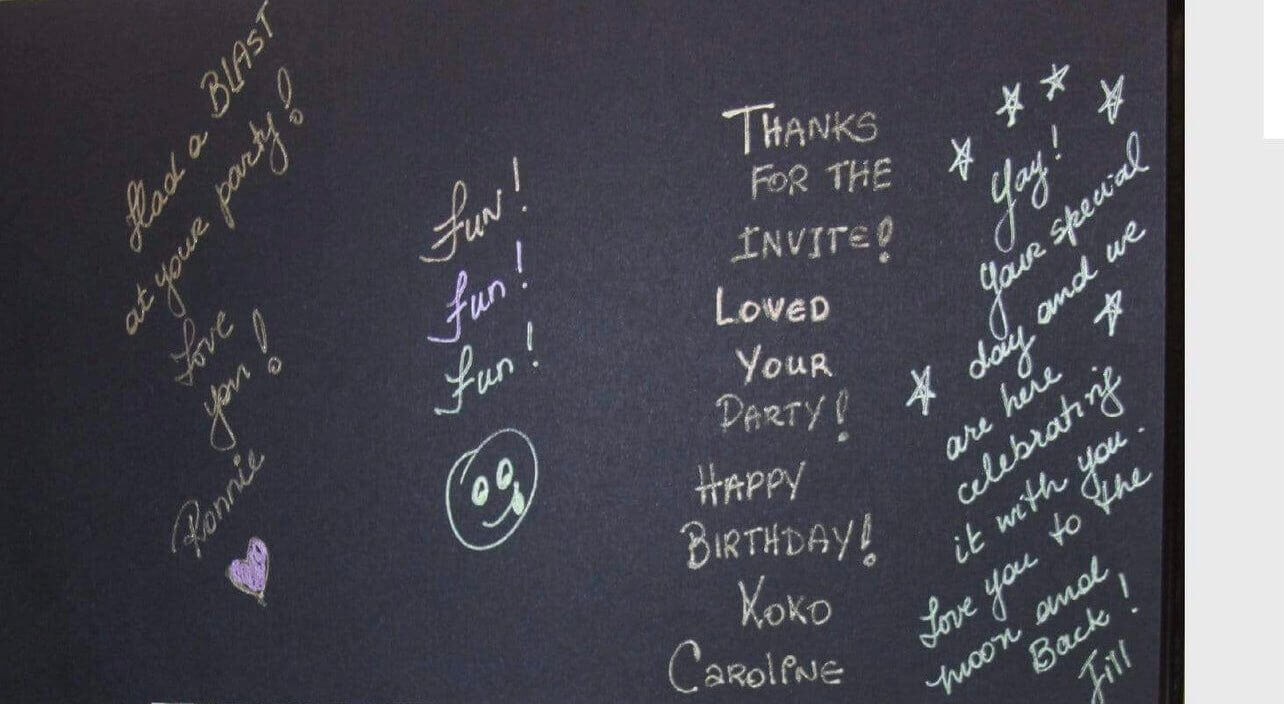 Had a BLAST
at your party!
Love
you!
Ronnie
Fun!
Fun!
Fun!
THANKS
FOR THE
INVITE!
LOVED
YOUR
PARTY!
HAPPY
BIRTHDAY!
XOXO
CAROLINE
Yay!
Your special
day and we
are here
celebrating
it with you.
Love you to the
moon and
Back!
Jill